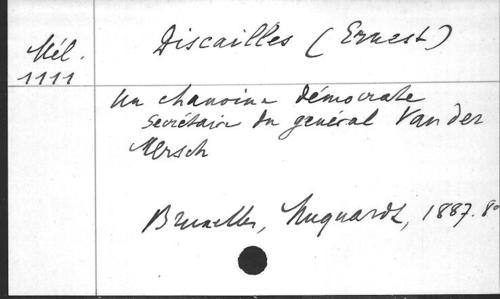 Mél.
1111
Discailles (Ernest)
Un chanoine démocrate
secrétaire du général Van der
Mersch
Bruxelles, Muquardt, 1887. 8º